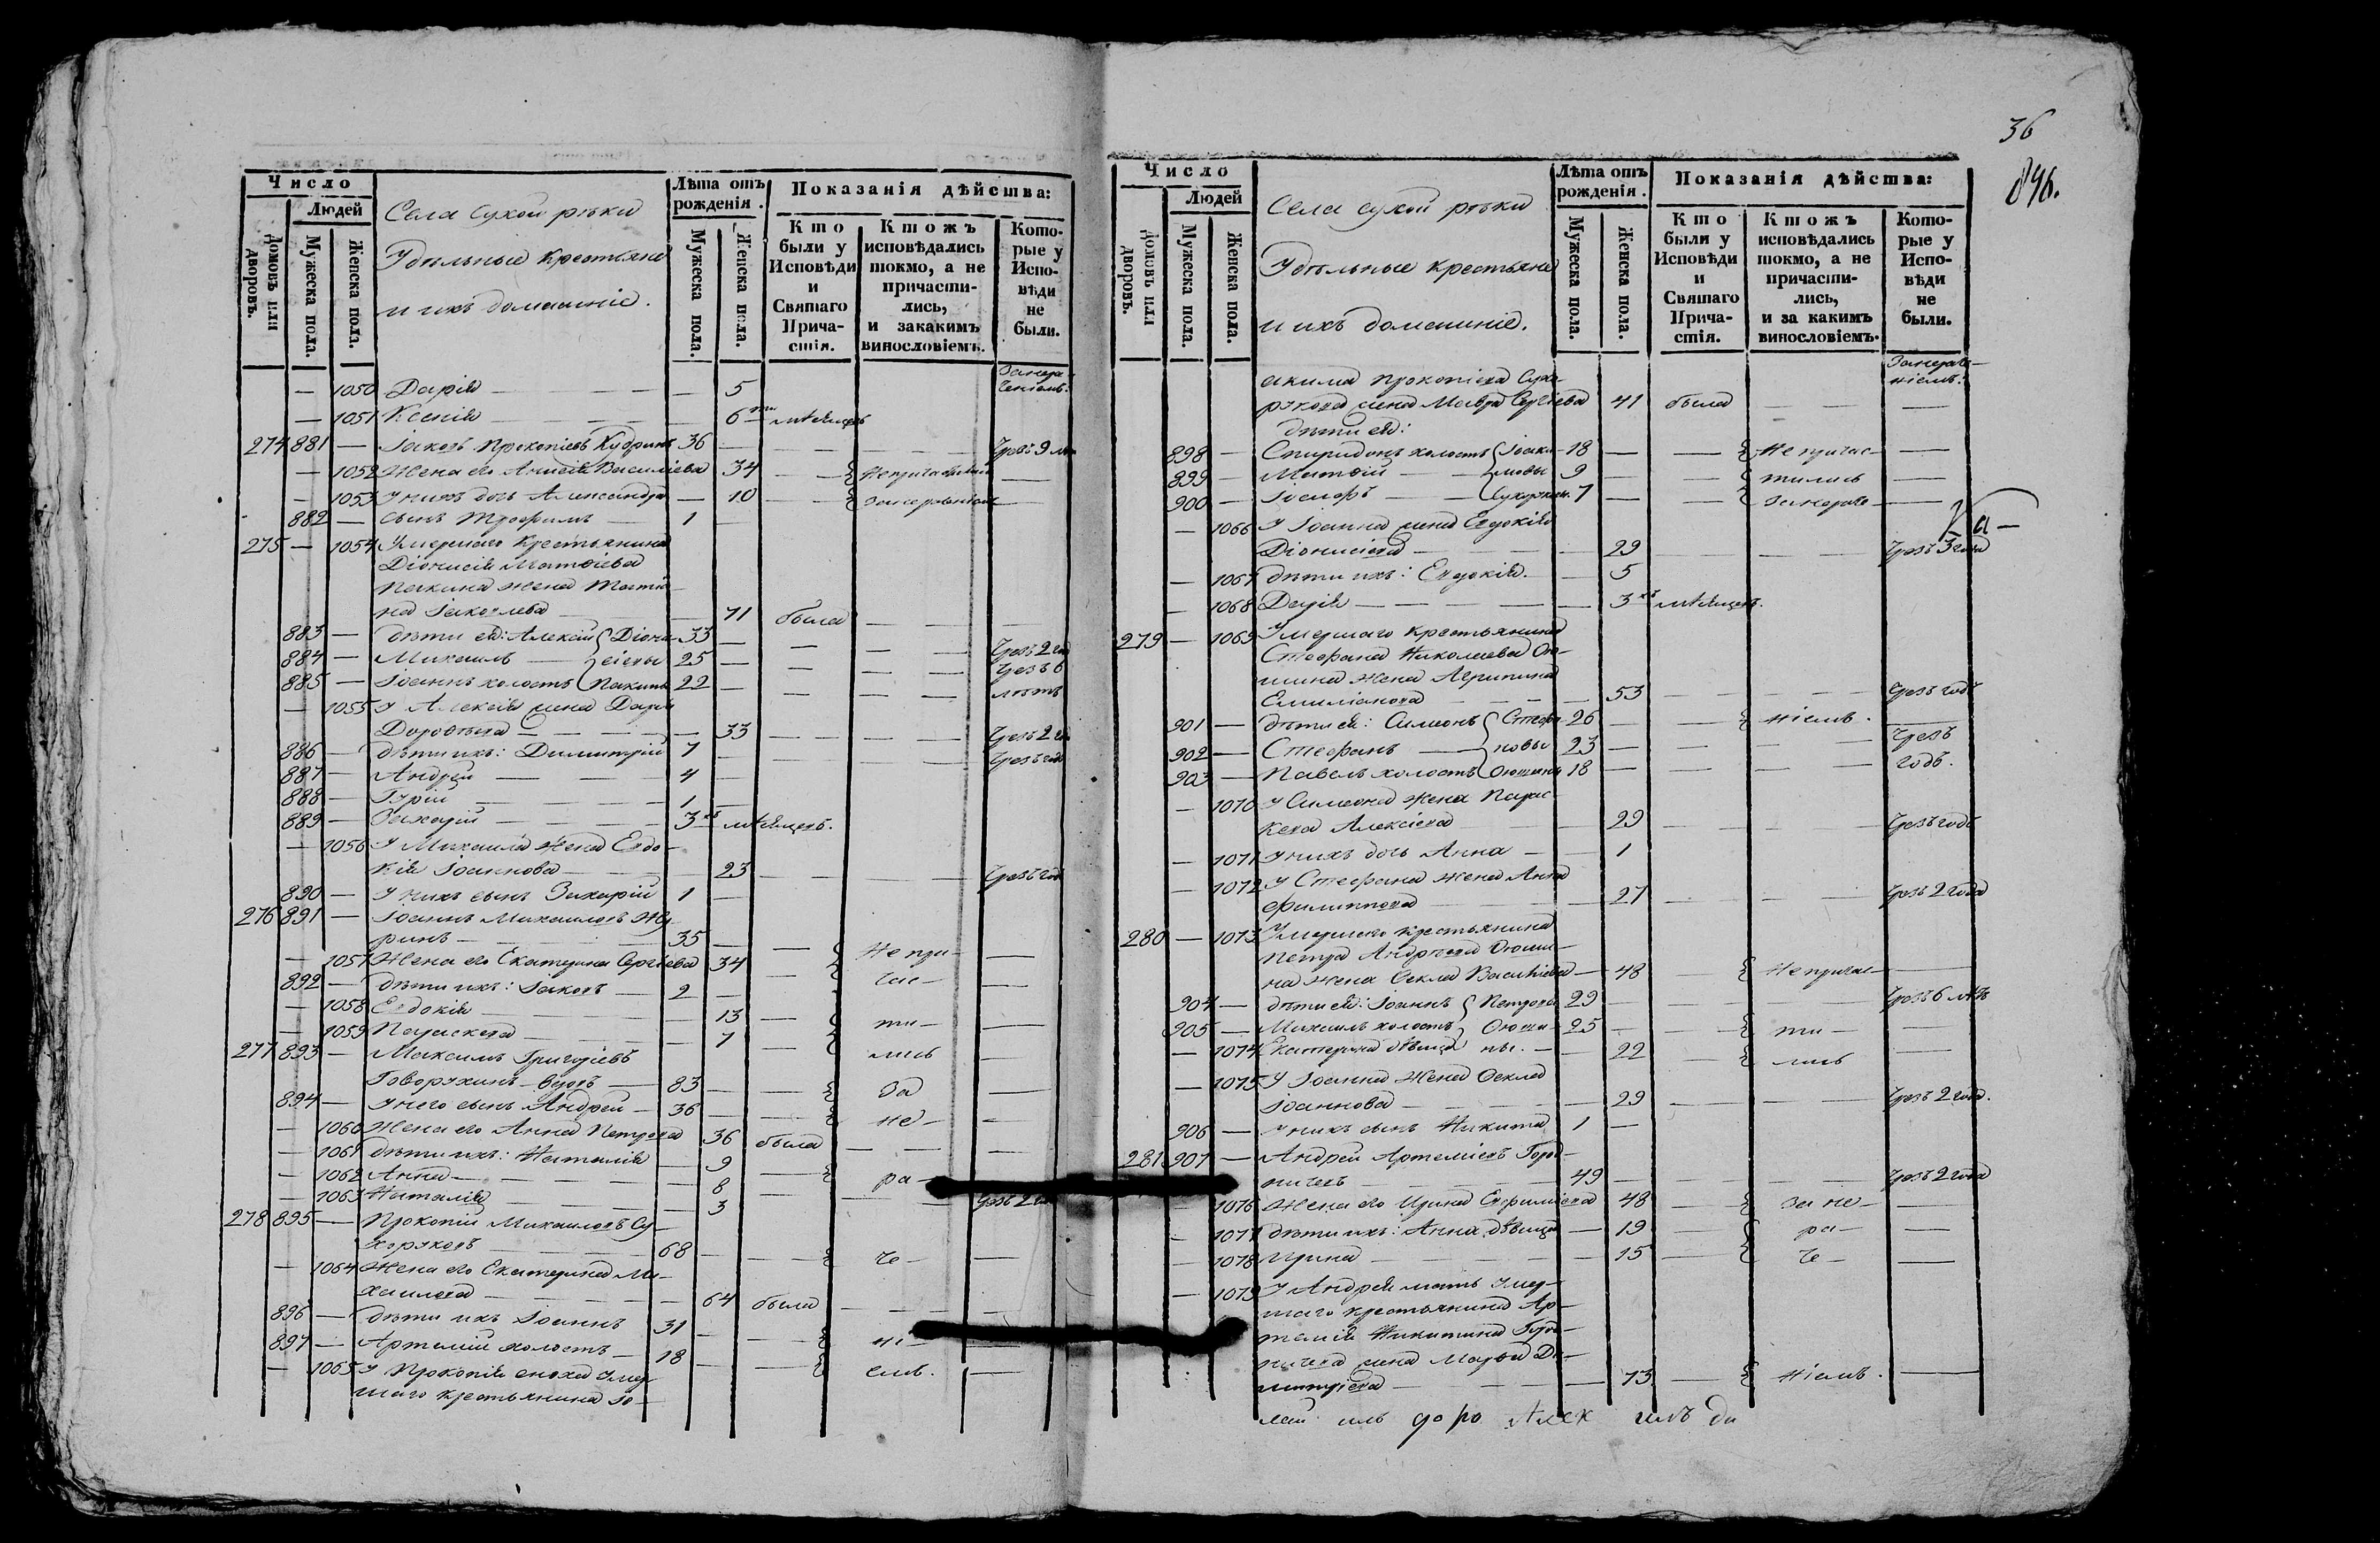 Число
Людей
домовъ или дворовъ.
Мужеска пола.
Женска пола.
Села Сухой рѣки
Удѣльные крестьяне
и ихъ домашніе.
Лѣта отъ рожденія.
Мужеска пола.
Женска пола.
Показанія дѣйства:
Кто были у Исповѣди и Святаго Причастія.
Ктожъ исповѣдались токмо, а не причастились, и закакимъ винословіемъ.
Которые у Исповѣди не были.
— 1050 Дарія — 5
— 1051 Ксенія — 6 мѣсяцевъ
274 881 — Іаковъ Прокопіевъ Кудринъ 36
— 1052 Жена его Васильева 34
— 1053 У нихъ дочь Александра — 10
882 — сынъ Трофимъ — 1
275 — 1054 Умершаго Крестьянина
Діонисія Матѳіева
Пакина жена Татіа-
на Іаковлева — 71 была
883 — дѣти ея: Алексій Діони- 33 Чрезъ 2 год
884 — Михаилъ — сіевы 25 Чрезъ 6
885 — Іоаннъ холостъ Пакины 22 лѣтъ
— 1055 У Алексія жена Дарія
Дороѳеева — 33 Чрезъ 2
886 — дѣти ихъ: Димитрій 7 Чрезъ годъ
887 — Андрей — 4
888 — Гурій — 1
889 — Захарій — 3 мѣсяцевъ.
— 1056 У Михаила жена Евдо-
кія Іоаннова — 23 Чрезъ годъ
890 — У нихъ сынъ Захарій 1 —
276 891 — Іоаннъ Михаиловъ Жу-
ринъ — 35
— 1057 Жена его Екатерина Сергіева 34 Не при-
892 — дѣти ихъ: Іаковъ — 2 час-
— 1058 Евдокія — 13
— 1059 Параскева — 7 ти-
277 893 — Максимъ Григоріевъ лись
Говорухинъ вдовъ — 83 За
894 — У него сынъ Андрей — 36 не-
— 1060 Жена его Анна Петрова 36 была
— 1061 дѣти ихъ: Наталія — 9
— 1062 Анна — 8 ра-
— 1063 Наталія — 3 Чрезъ 2
278 895 — Прокопій Михаиловъ Су-
хоруковъ — 68 че-
— 1064 Жена его Екатерина Ми-
хаилова — 64 была
896 — дѣти ихъ Іоаннъ 31
897 — Артемій холостъ — 18 ні-
— 1065 У Прокопія сноха умер- емъ.
шаго крестьянина Іо-
36
846.
Число
Людей
домовъ или дворовъ.
Мужеска пола.
Женска пола.
Села Сухой рѣки
Удѣльные крестьяне
и ихъ домашніе.
Лѣта отъ рожденія.
Мужеска пола.
Женска пола.
Показанія дѣйства:
Кто были у Исповѣди и Святаго Причастія.
Ктожъ исповѣдались токмо, а не причастились, и за какимъ винословіемъ.
Которые у Исповѣди не были.
акима Прокопіева Сухо-
рукова жена Мавра Сергіева 41 была
дѣти ея:
898 — Спиридонъ холостъ Іоаки- 18 Не причас-
899 — Матѳій — мовы 9 тились
900 — Іосифъ — Сухоруковы 7
— 1066 У Іоанна жена Евдокія
Діонисіева — 29 Чрезъ 3 года
— 1067 дѣти ихъ: Евдокія. — 5
— 1068 Дарія — 3 мѣсяцевъ.
279 — 1069 Умершаго крестьянина
Стефана Николаева Ою-
шина жена Агрипина
Емиліанова — 53 Чрезъ годъ
901 — дѣти ея: Симеонъ Стефа- 26 ніемъ.
902 — Стефанъ — новы 23 Чрезъ
903 — Павелъ холостъ Оюшины 18 годъ.
— 1070 У Симеона жена Парас-
кева Алексіева — 29 Чрезъ годъ
— 1071 У нихъ дочь Анна — 1
— 1072 У Стефана жена Анна
Филиппова — 27 Чрезъ 2 года
280 — 1073 Умершаго крестьянина
Петра Андреева Оюши-
на жена Ѳекла Васильева — 48 Не причас-
904 — дѣти ея: Іоаннъ Петровы 29 Чрезъ 6 лѣтъ
905 — Михаилъ холостъ Оюши- 25 ти-
— 1074 Екатерина дѣвица ны. — 22 лись
— 1075 У Іоанна жена Ѳекла
Іоаннова — 29 Чрезъ 2 года.
906 — У нихъ сынъ Никита 1 —
281 907 — Андрей Артеміевъ Горд-
49 Чрезъ 2 года
1076 Жена его Ирина Евфиміева 48 за не-
— 1077 дѣти ихъ: Анна дѣвица — 19 ра-
— 1078 Ирина — 15 че-
— 1079 У Андрея мать умер-
шаго крестьянина Ар-
темія Никитина
жена Марѳа Ди-
митріева — 73 ніемъ.